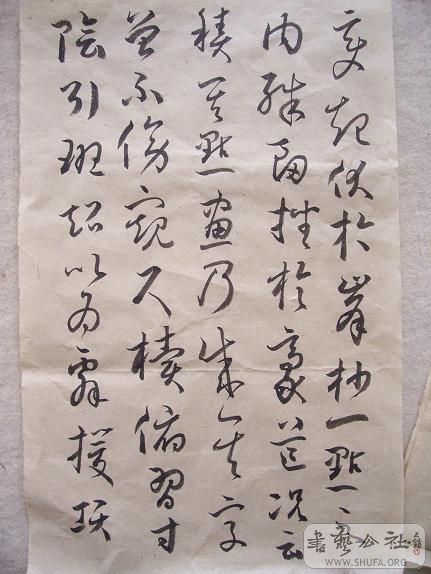 變起伏於峯杪一點之
内殊衄挫於豪芒況云
積其點畫乃成其字
曾不傍窺尺牘俯習寸
陰引班超以為辭援項
書藝公社
WWW.SHUFA.ORG